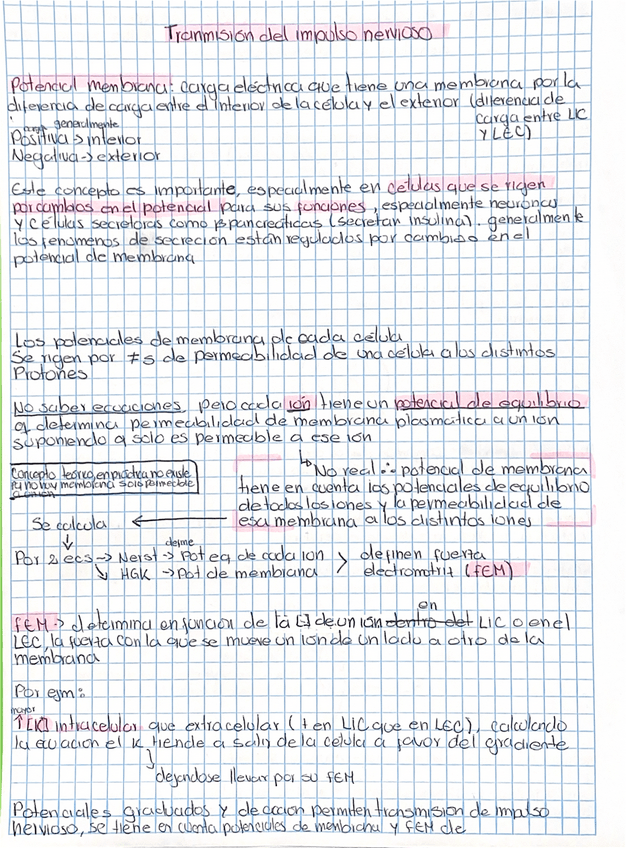 Tranmisión del impulso nervioso
Potencial membrana: carga eléctrica que tiene una membrana por la
diferencia de carga entre el interior de la célula y el exterior (diferencia de
carga entre LIC
y LEC)
carga generalmente
Positiva → interior
Negativa → exterior
Este concepto es importante, especialmente en células que se rigen
por cambios en el potencial para sus funciones, especialmente neuronas
y células secretoras como β pancreáticas (secretan insulina). generalmente
los fenómenos de secreción están regulados por cambios en el
potencial de membrana
Los potenciales de membrana de cada célula
Se rigen por ≠s de permeabilidad de una célula a los distintos
Protones
No saber ecuaciones, pero cada ión tiene un potencial de equilibrio
q determina permeabilidad de membrana plasmática a un ion
suponiendo q solo es permeable a ese ion
↳ No real ∴ potencial de membrana
tiene en cuenta los potenciales de equilibrio
de todos los iones y la permeabilidad de
esa membrana a los distintos iones
Concepto teórico, en práctica no existe
pq no hay membrana solo permeable
a un ion
Se calcula ←
↓
define
Por 2 ecs → Nerst → Pot eq de cada ion > definen fuerza
↘ HGK → Pot de membrana electromotriz (fEM)
fEM → determina en función de la [] de un ión dentro del en LIC o en el
LEC, la fuerza con la que se mueve un ion de un lado a otro de la
membrana
Por ejm:
mayor
↑[K] intracelular que extracelular (+ en LIC que en LEC), calculando
la ecuación el K tiende a salir de la célula a favor del gradiente
dejandose llevar por su fEM
Potenciales graduados y de acción permiten transmisión de impulso
nervioso, se tiene en cuenta potenciales de membrana y fEM de